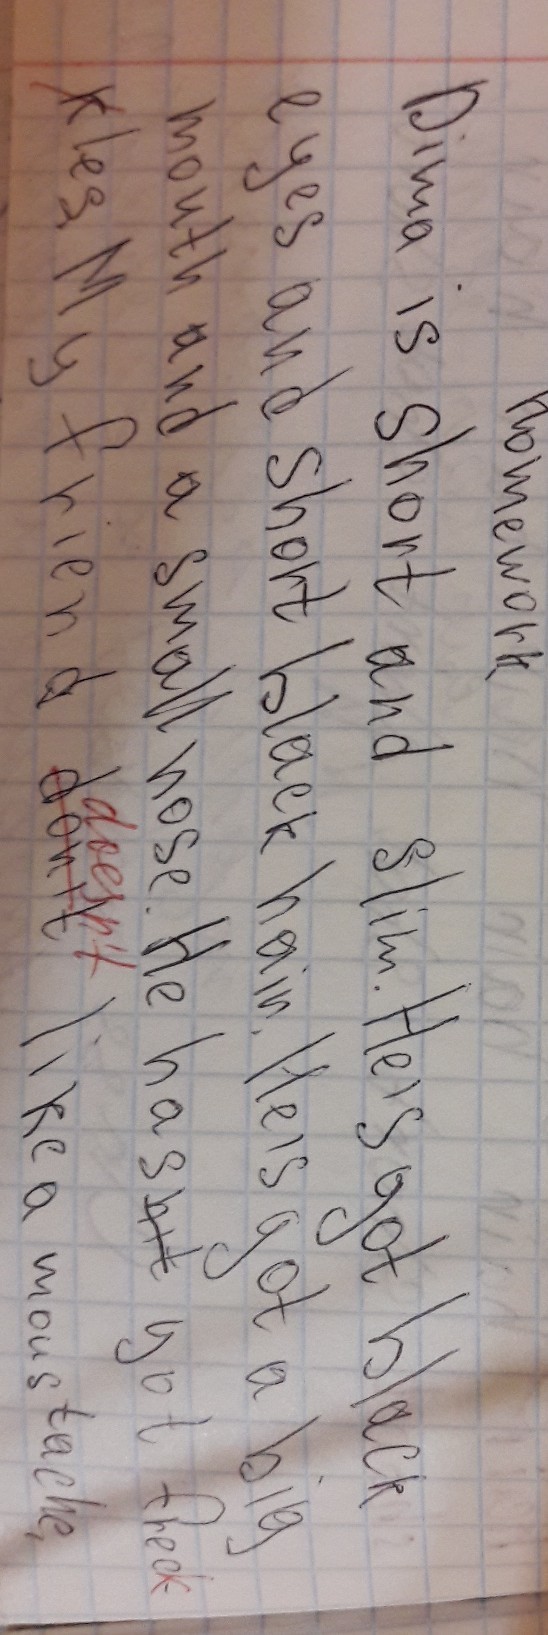 homework
Dima is short and slim. He is got black
eyes and short black hair. He is got a big
mouth and a small nose. He hasnt got freck
kles, My friend don't doesn't like a moustache,